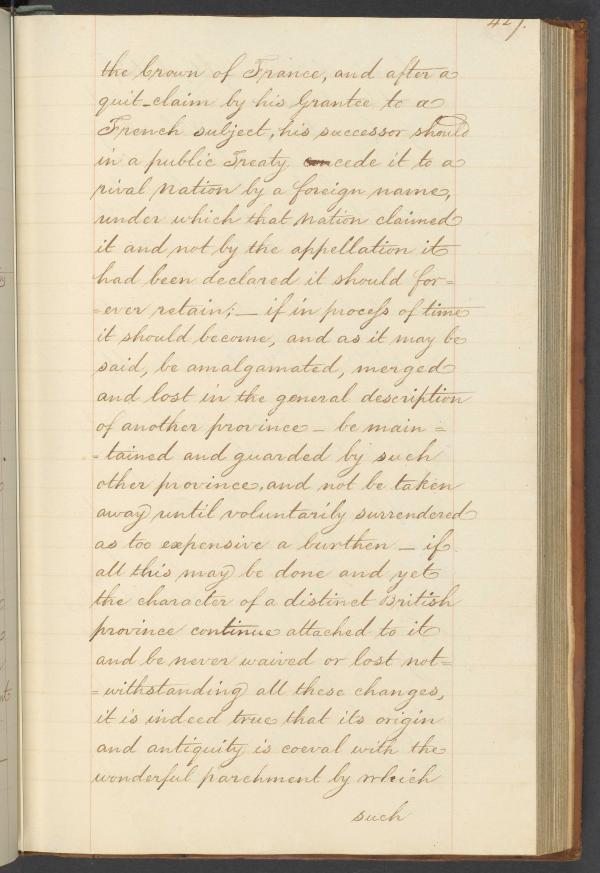 427.
the Crown of France, and after a
quit-claim by his Grantee to a
French subject, his successor should
in a public Treaty concede it to a
rival Nation by a foreign name,
under which that Nation claimed
it and not by the appellation it
had been declared it should for=
=ever retain; — if in process of time
it should become, and as it may be
said, be amalgamated, merged
and lost in the general description
of another province — be main=
=tained and guarded by such
other province, and not be taken
away until voluntarily surrendered
as too expensive a burthen — if
all this may be done and yet
the character of a distinct British
province continue attached to it
and be never waived or lost not=
=withstanding all these changes,
it is indeed true that its origin
and antiquity is coeval with the
wonderful parchment by which
such